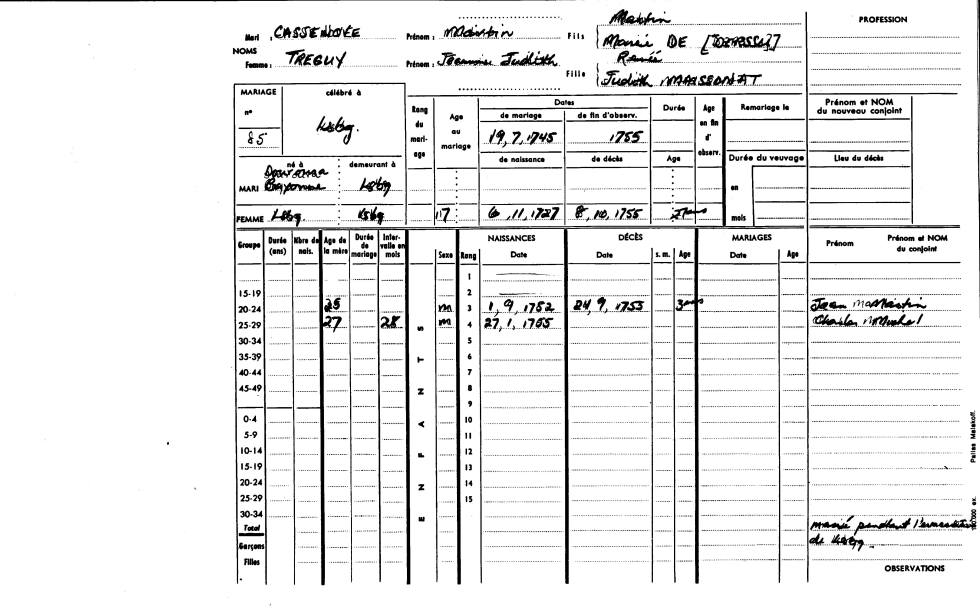 Mari : CASSENDUYÉE Prénom : Martin Fils Martin
Marie DE
NOMS
Femme : TREGUY Prénom : Jeanne Judith Fille René
Judith
PROFESSION
MARIAGE célébré à
n°
85 Lsbg.
Rang du mariage
Age au mariage
Dates
de mariage de fin d'observ.
19, 7, 1745 1755
de naissance de décès
Durée
Age
Age en fin d' observ.
Remariage le
Durée du veuvage
en
mois
Prénom et NOM du nouveau conjoint
Lieu du décès
né à demeurant à
MARI Bayonne Lsbg
FEMME Lsbg. Lsbg 17 6, 11, 1727 8, 10, 1755 27 ans
Groupe Durée (ans) Nbre de nais. Age de la mère Durée de mariage Intervalle en mois
Sexe Rang NAISSANCES Date DÉCÈS Date s. m. Age MARIAGES Date Age Prénom Prénom et NOM du conjoint
1
15-19 2
20-24 25 m 3 1, 9, 1752 24, 9, 1755 3 ans Jean Martin
25-29 27 28 m 4 27, 1, 1755 Charles Michel
30-34 5
35-39 6
40-44 7
45-49 8
9
0-4 10
5-9 11
10-14 12
15-19 13
20-24 14
25-29 15
30-34
Total
Garçons
Filles
ENFANTS
marié pendant
de Lsbg.
OBSERVATIONS
ex. Petites Malakoff.